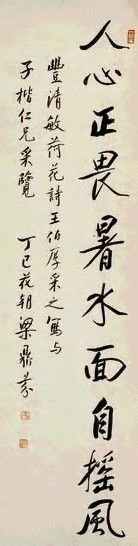 人心正畏暑水面自搖風
豐清敏荷花詩王伯厚采之寫與
子楷仁兄采覽
丁巳花朝梁鼎芬